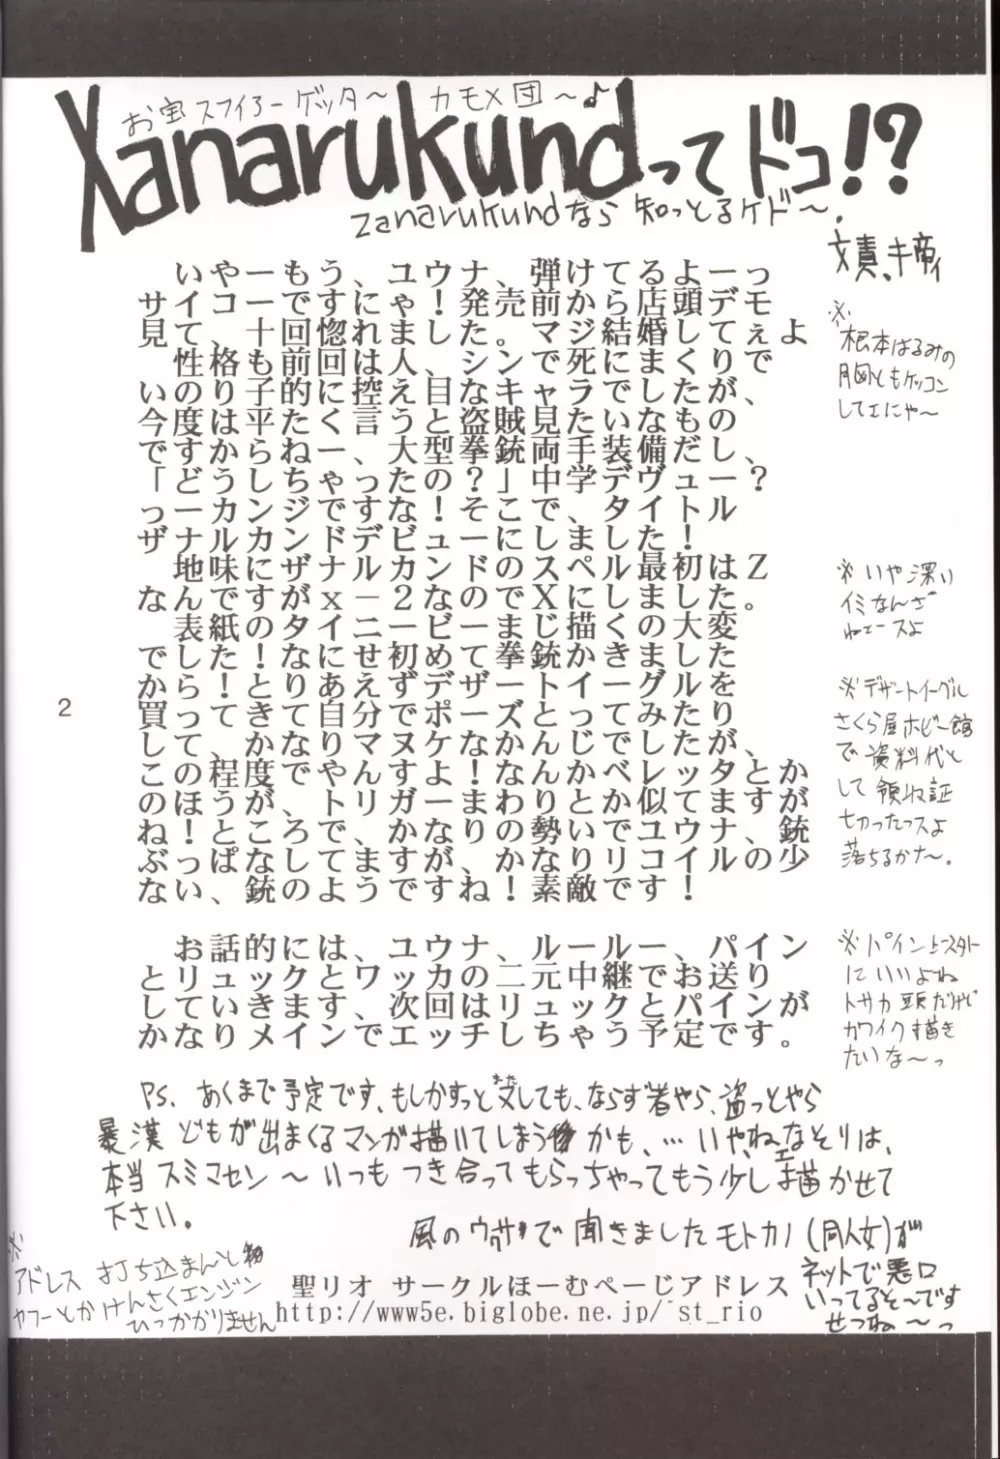 お宝スフィアーゲッタ～ カモメ団～♪
Xanarukundってドコ!?
zanarukundなら知っとるケド～.
いやーもう、ユウナ、弾けてるよーっ
サイコーです、にゃ!発売前から店頭デモ
見て、十回惚れました。マジ結婚してぇよ
性格も前回は人シンで死にまくりで
いのり子的に控え目なキャラでしたが、
今度は平たく言うと盗賊見たいなもの
ですからねー、大型拳銃両手装備だし、
「どうしちゃったの?」中学デヴュー?
っーカンジですな!そこで、タイトル
ザナルカンドデビュードにしました!
地味にザナルカンドのスペル最初はZ
なんですがx－2なのでXにしました。
表紙のタイニービーまじ描くの大変
でした!なにせ初めて拳銃かきました
からね!とりあえずデザートイーグルを
買って、きて自分でポーズとってみたり
して、かなりマヌケなかんじでしたが、
この程度でやんすよ!なんかベレッタとか
のほうが、トリガーまわりとか似てますが
ね!ところで、かなりの勢いでユウナ、銃
ぶっぱなしてますが、かなりリコイルの少
ない、銃のようですね!素敵です!
お話的には、ユウナ、ルールー、パイン
とリュックとワッカの二元中継でお送り
としていきます、次回はリュックとパインが
かなりメインでエッチしちゃう予定です。
※根本はるみの
胸ともケッコン
してエにゃ～
※いや深い
イミなんざ
ねェースよ
※デザートイーグル
さくら屋ホビー館
で資料代と
して領収証
切ったっスよ
落ちるかな～。
にいいよね
トサカ頭だけど
カワイク描き
たいな～っ
2
Ps、あくまで予定です、もしかすっとまたしても、ならず者やら、盗っとやら
暴漢どもが出まくるマンガ描いてしまうかも、…いやねェなそりは、
本当スミマセン～いつもつき合ってもらっちゃってもう少し描かせて
下さい。
風のウワサで聞きましたモトカノ(同人女)が
ネットで悪口
いってるそ～です
せつね～っ
※
アドレス打ち込まんと
ヤフーとかけんさくエンジン
ひっかかりません
聖リオ サークルほーむぺーじアドレス
http://www5e.biglobe.ne.jp/~st_rio